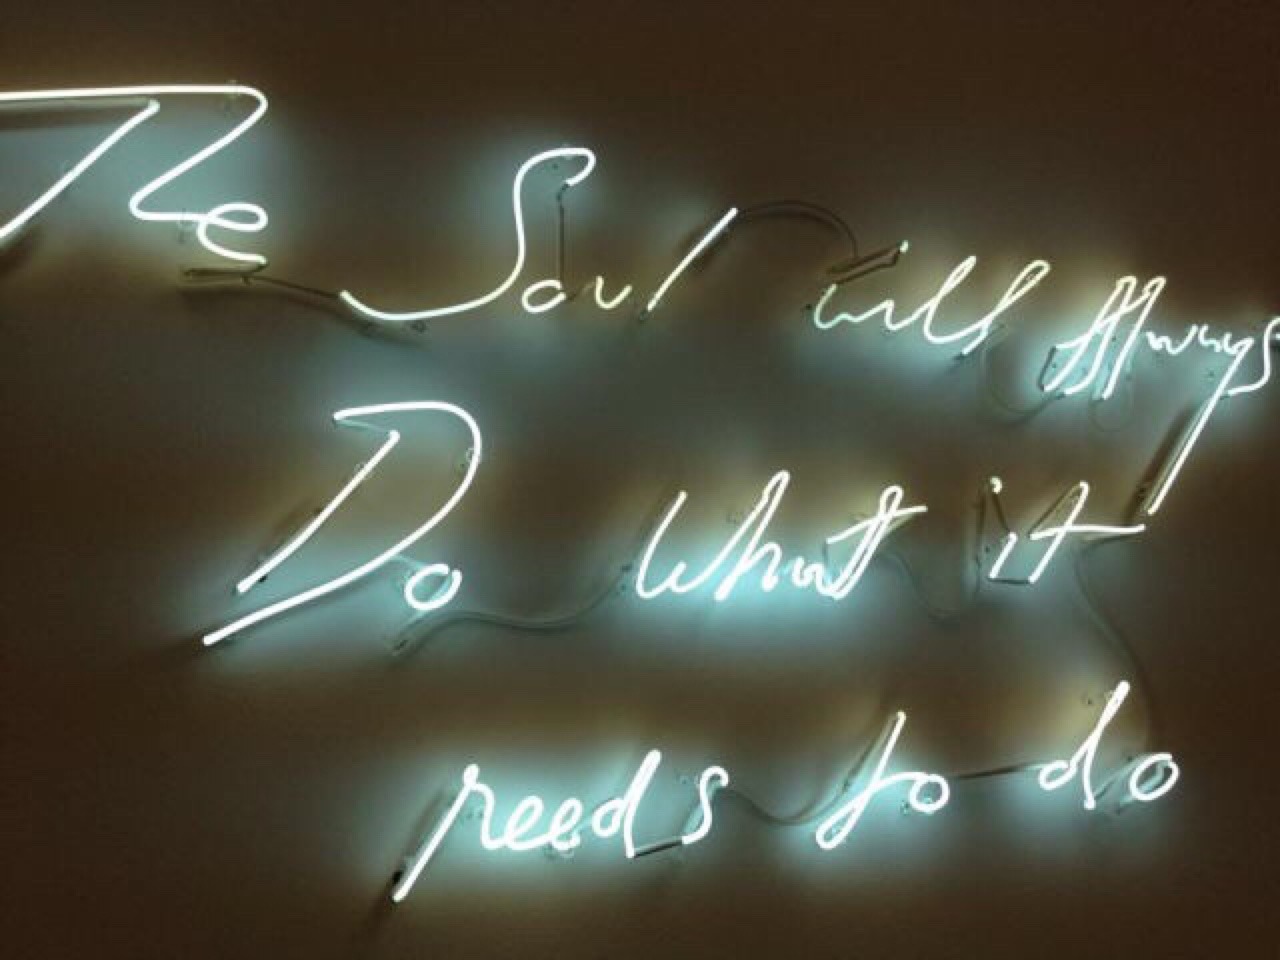 The Soul will Always
Do What it
needs to do